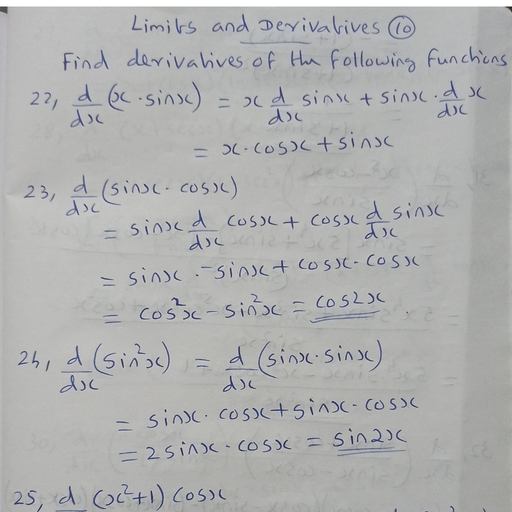 Limits and Derivatives ⑩
Find derivatives of the following functions
22, d/dx (x · sinx) = x d/dx sinx + sinx · d/dx x
= x · cosx + sinx
23, d/dx (sinx · cosx)
= sinx d/dx cosx + cosx d/dx sinx
= sinx · -sinx + cosx · cosx
= cos²x - sin²x = cos2x
24, d/dx (sin²x) = d/dx (sinx · sinx)
= sinx · cosx + sinx · cosx
= 2 sinx · cosx = sin2x
25, d (x²+1) cosx